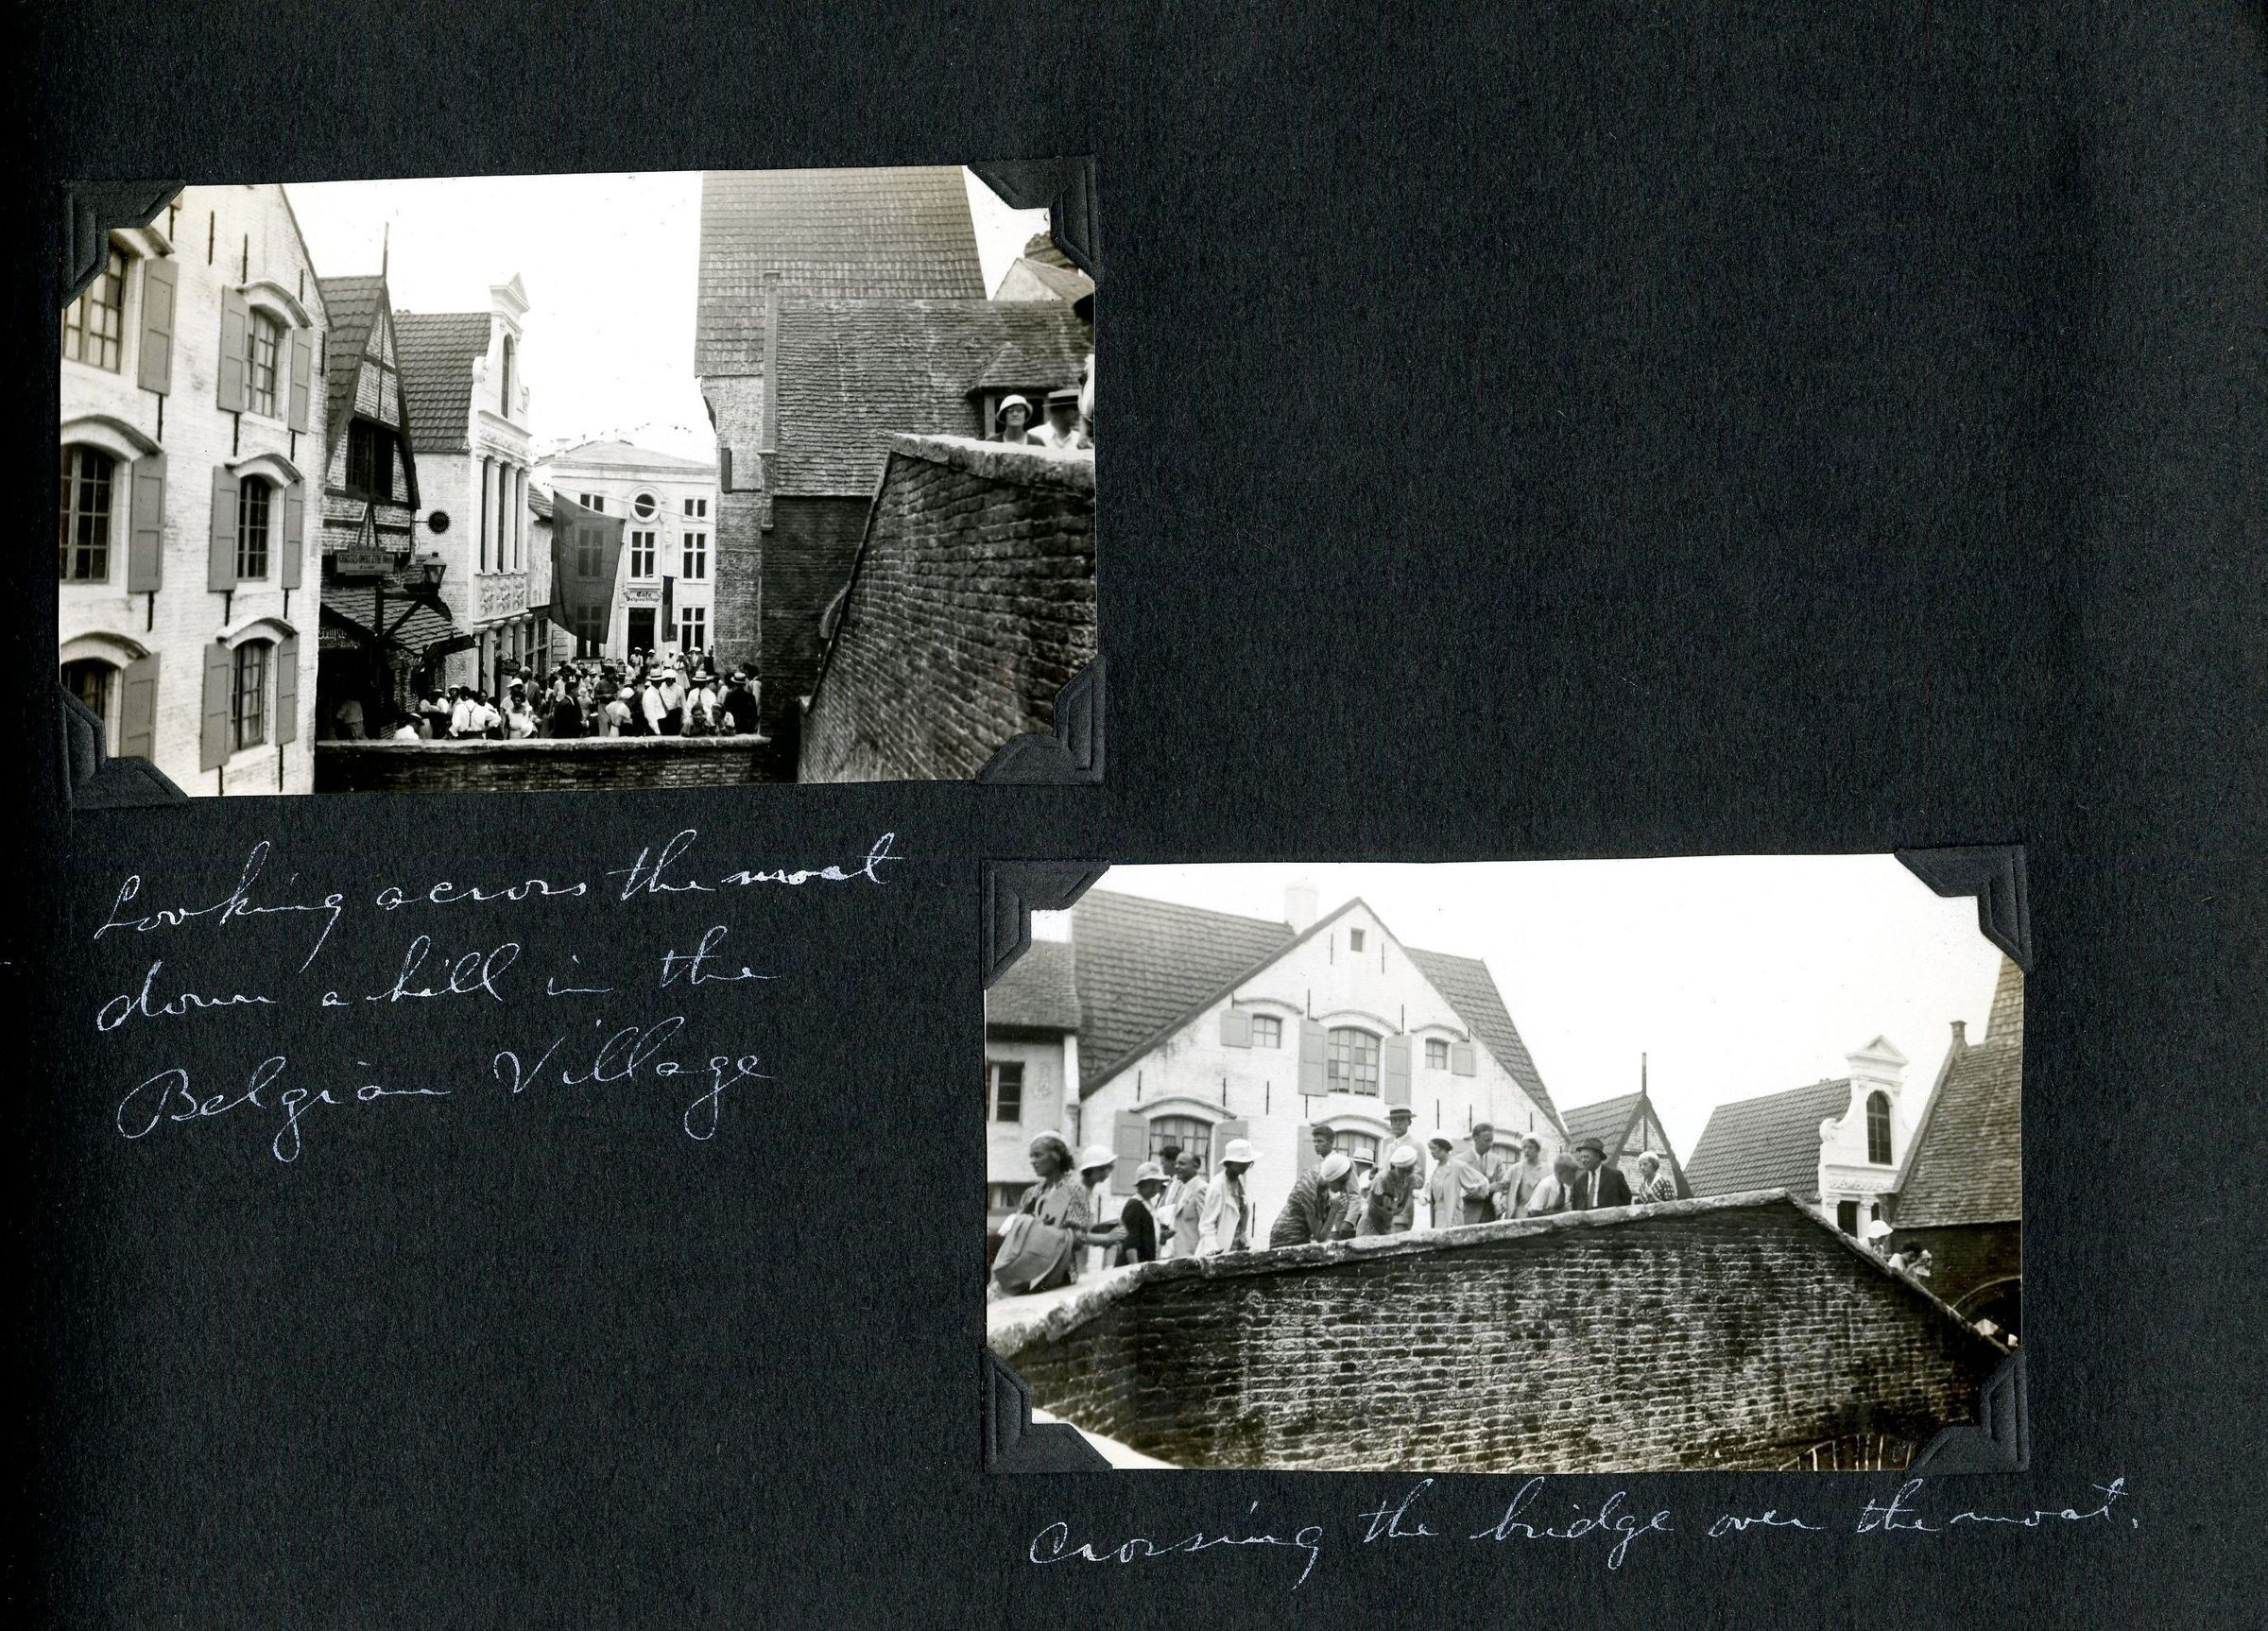 Café
Belgian Village
Looking across the moat
down a hill in the
Belgian Village
Crossing the bridge over the moat.